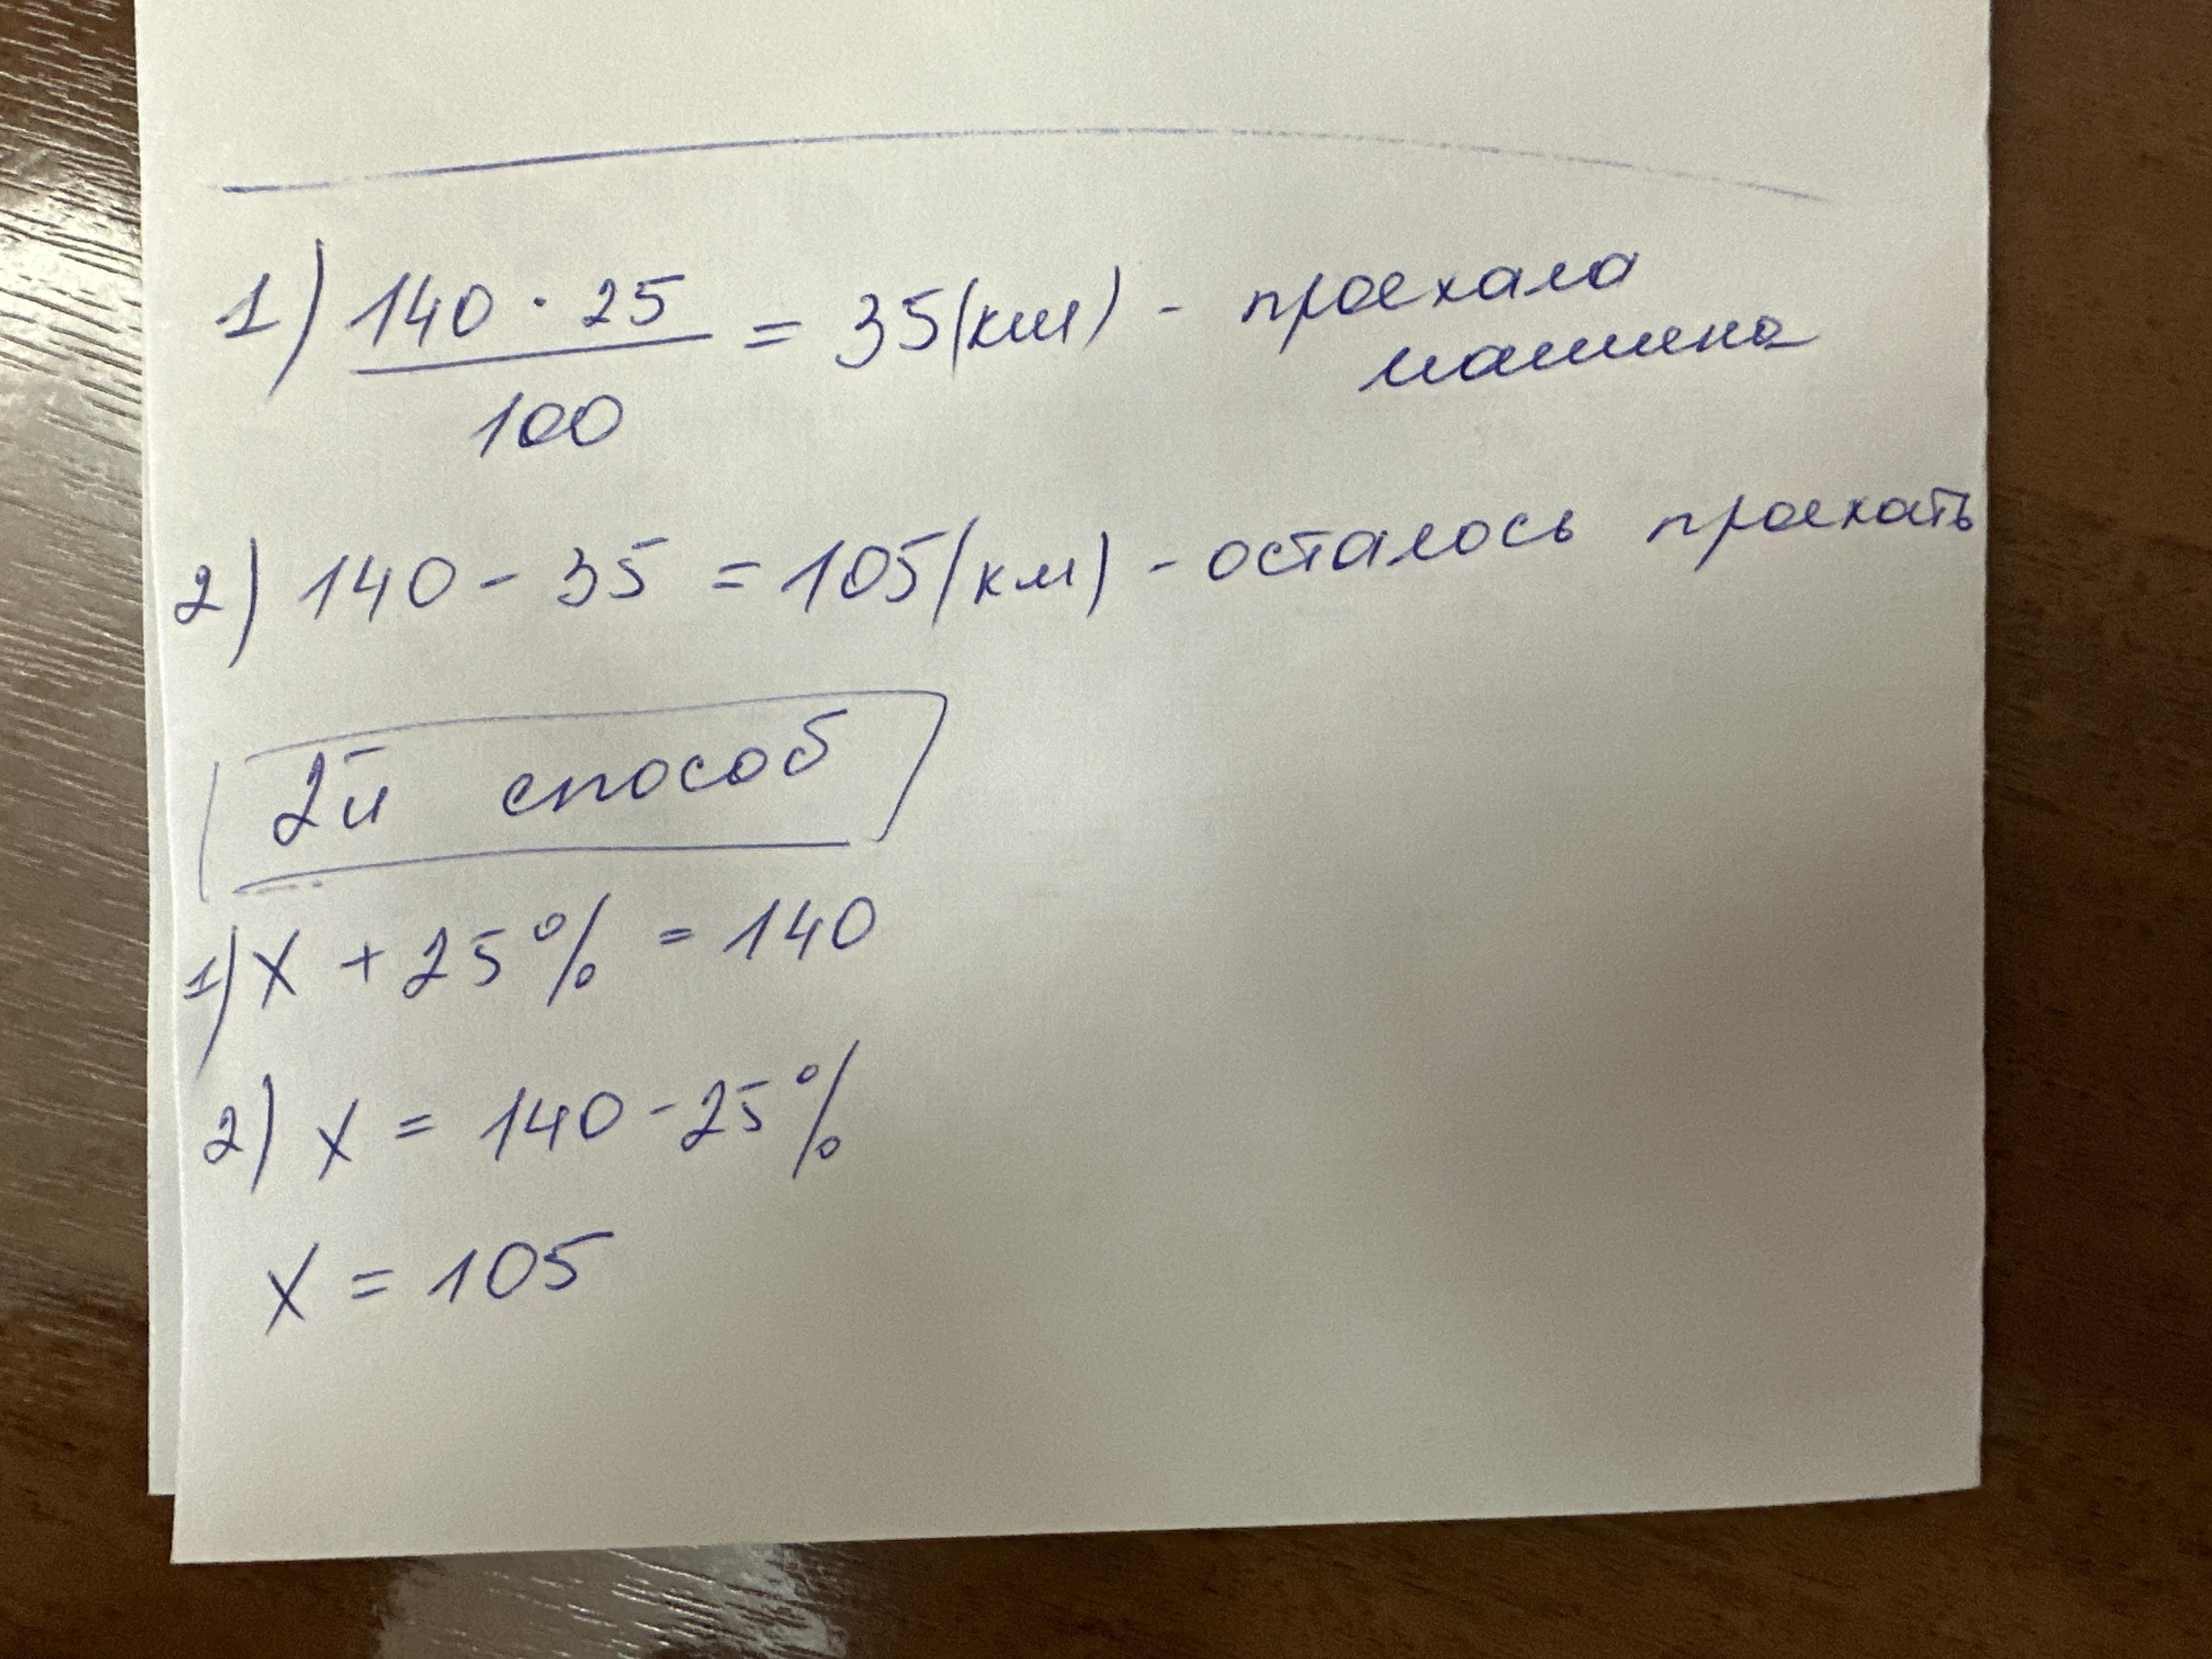 1) 140 · 25 / 100 = 35 (км) - проехала
машина
2) 140 - 35 = 105 (км) - осталось проехать
2й способ
1) x + 25% = 140
2) x = 140 - 25%
x = 105